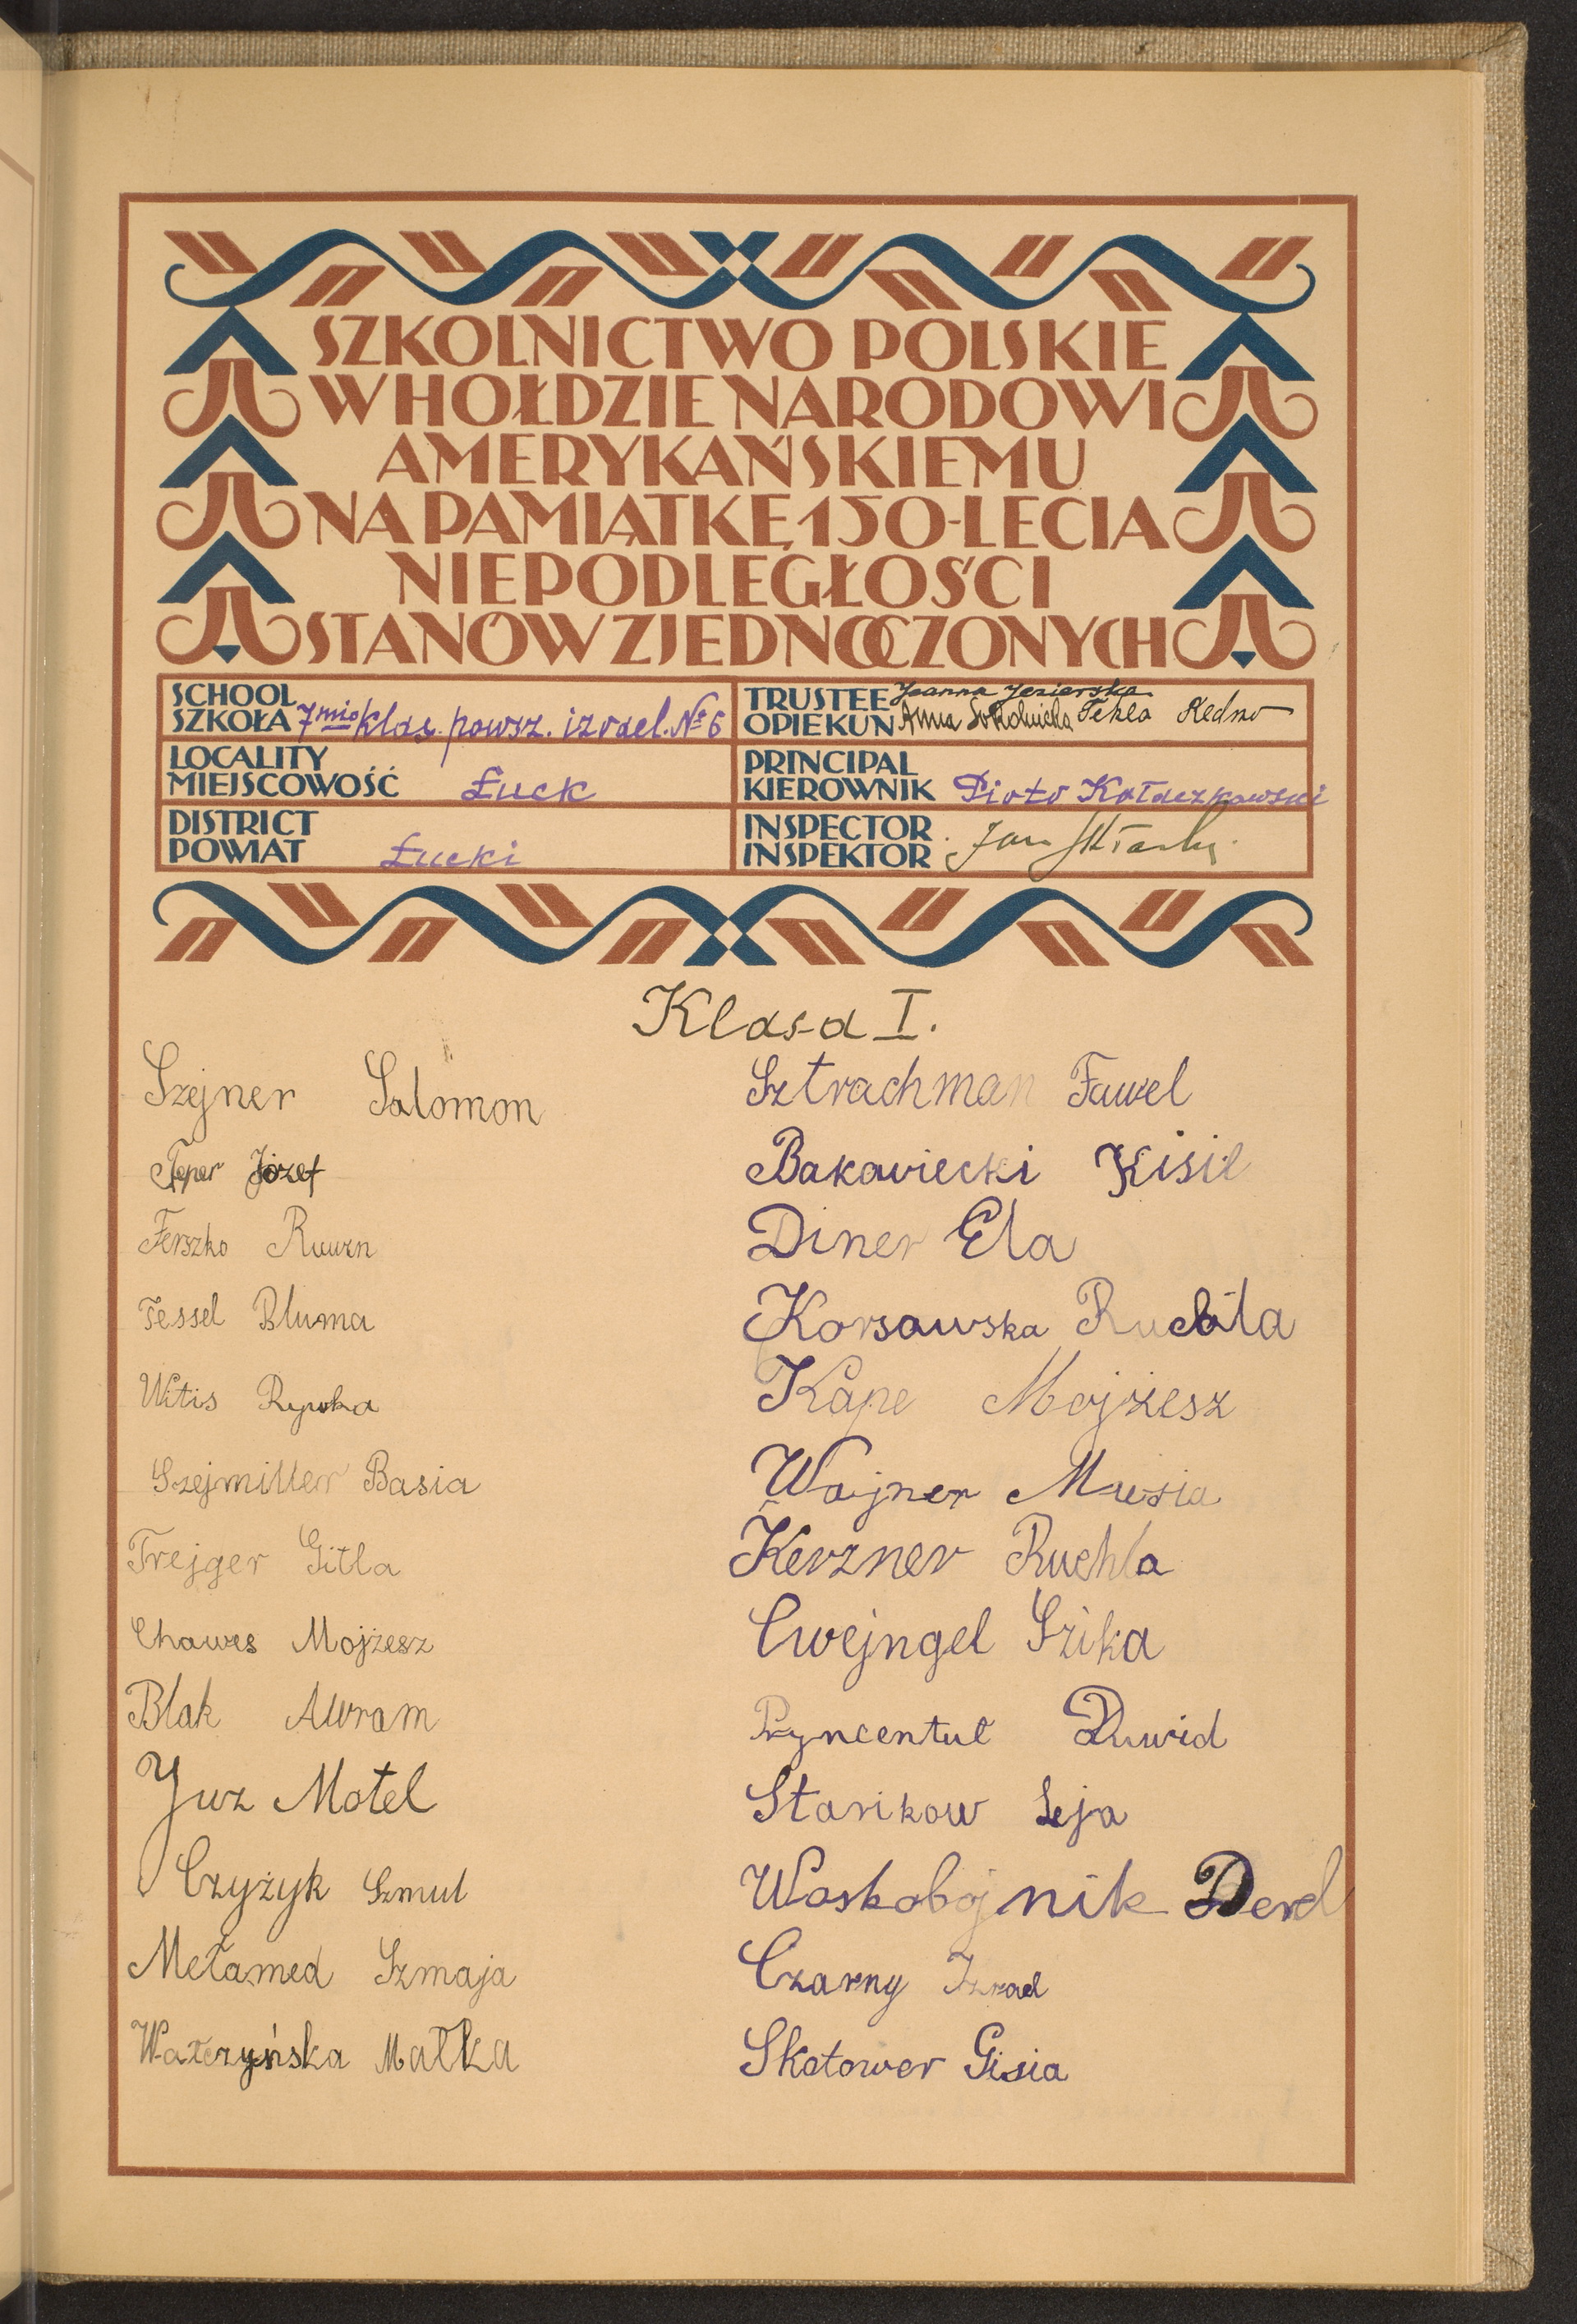 SZKOLNICTWO POLSKIE
W HOŁDZIE NARODOWI
AMERYKAŃSKIEMU
NA PAMIĄTKĘ 150-LECIA
NIEPODLEGŁOŚCI
STANÓW ZJEDNOCZONYCH
SCHOOL
SZKOŁA 7mio klas. powsz. izrael. № 6
TRUSTEE Joanna Jezierska
OPIEKUN Anna Sokolnicka Tekla
LOCALITY
MIEJSCOWOŚĆ Łuck
PRINCIPAL
KIEROWNIK Piotr Kołaczkowski
DISTRICT
POWIAT Łucki
INSPECTOR
INSPEKTOR Jan
Klasa I.
Szejner Salomon
Teper Józef
Ferszko Ruwen
Fessel Bluma
Witis Rywka
Szejmiller Basia
Trejger Gitla
Chawes Mojżesz
Blak Awram
Juz Motel
Czyżyk Szmul
Mełamed Szmaja
Wałczyńska Małka
Sztrachman Fawel
Bakowiecki Kisil
Diner Ela
Korsowska Ruchla
Kape Mojżesz
Wajner Musia
Kerzner Ruchla
Cwejngel Szika
Pryncentul Duwid
Starikow Leja
Woskobojnik
Czarny Izrael
Skotower Gisia